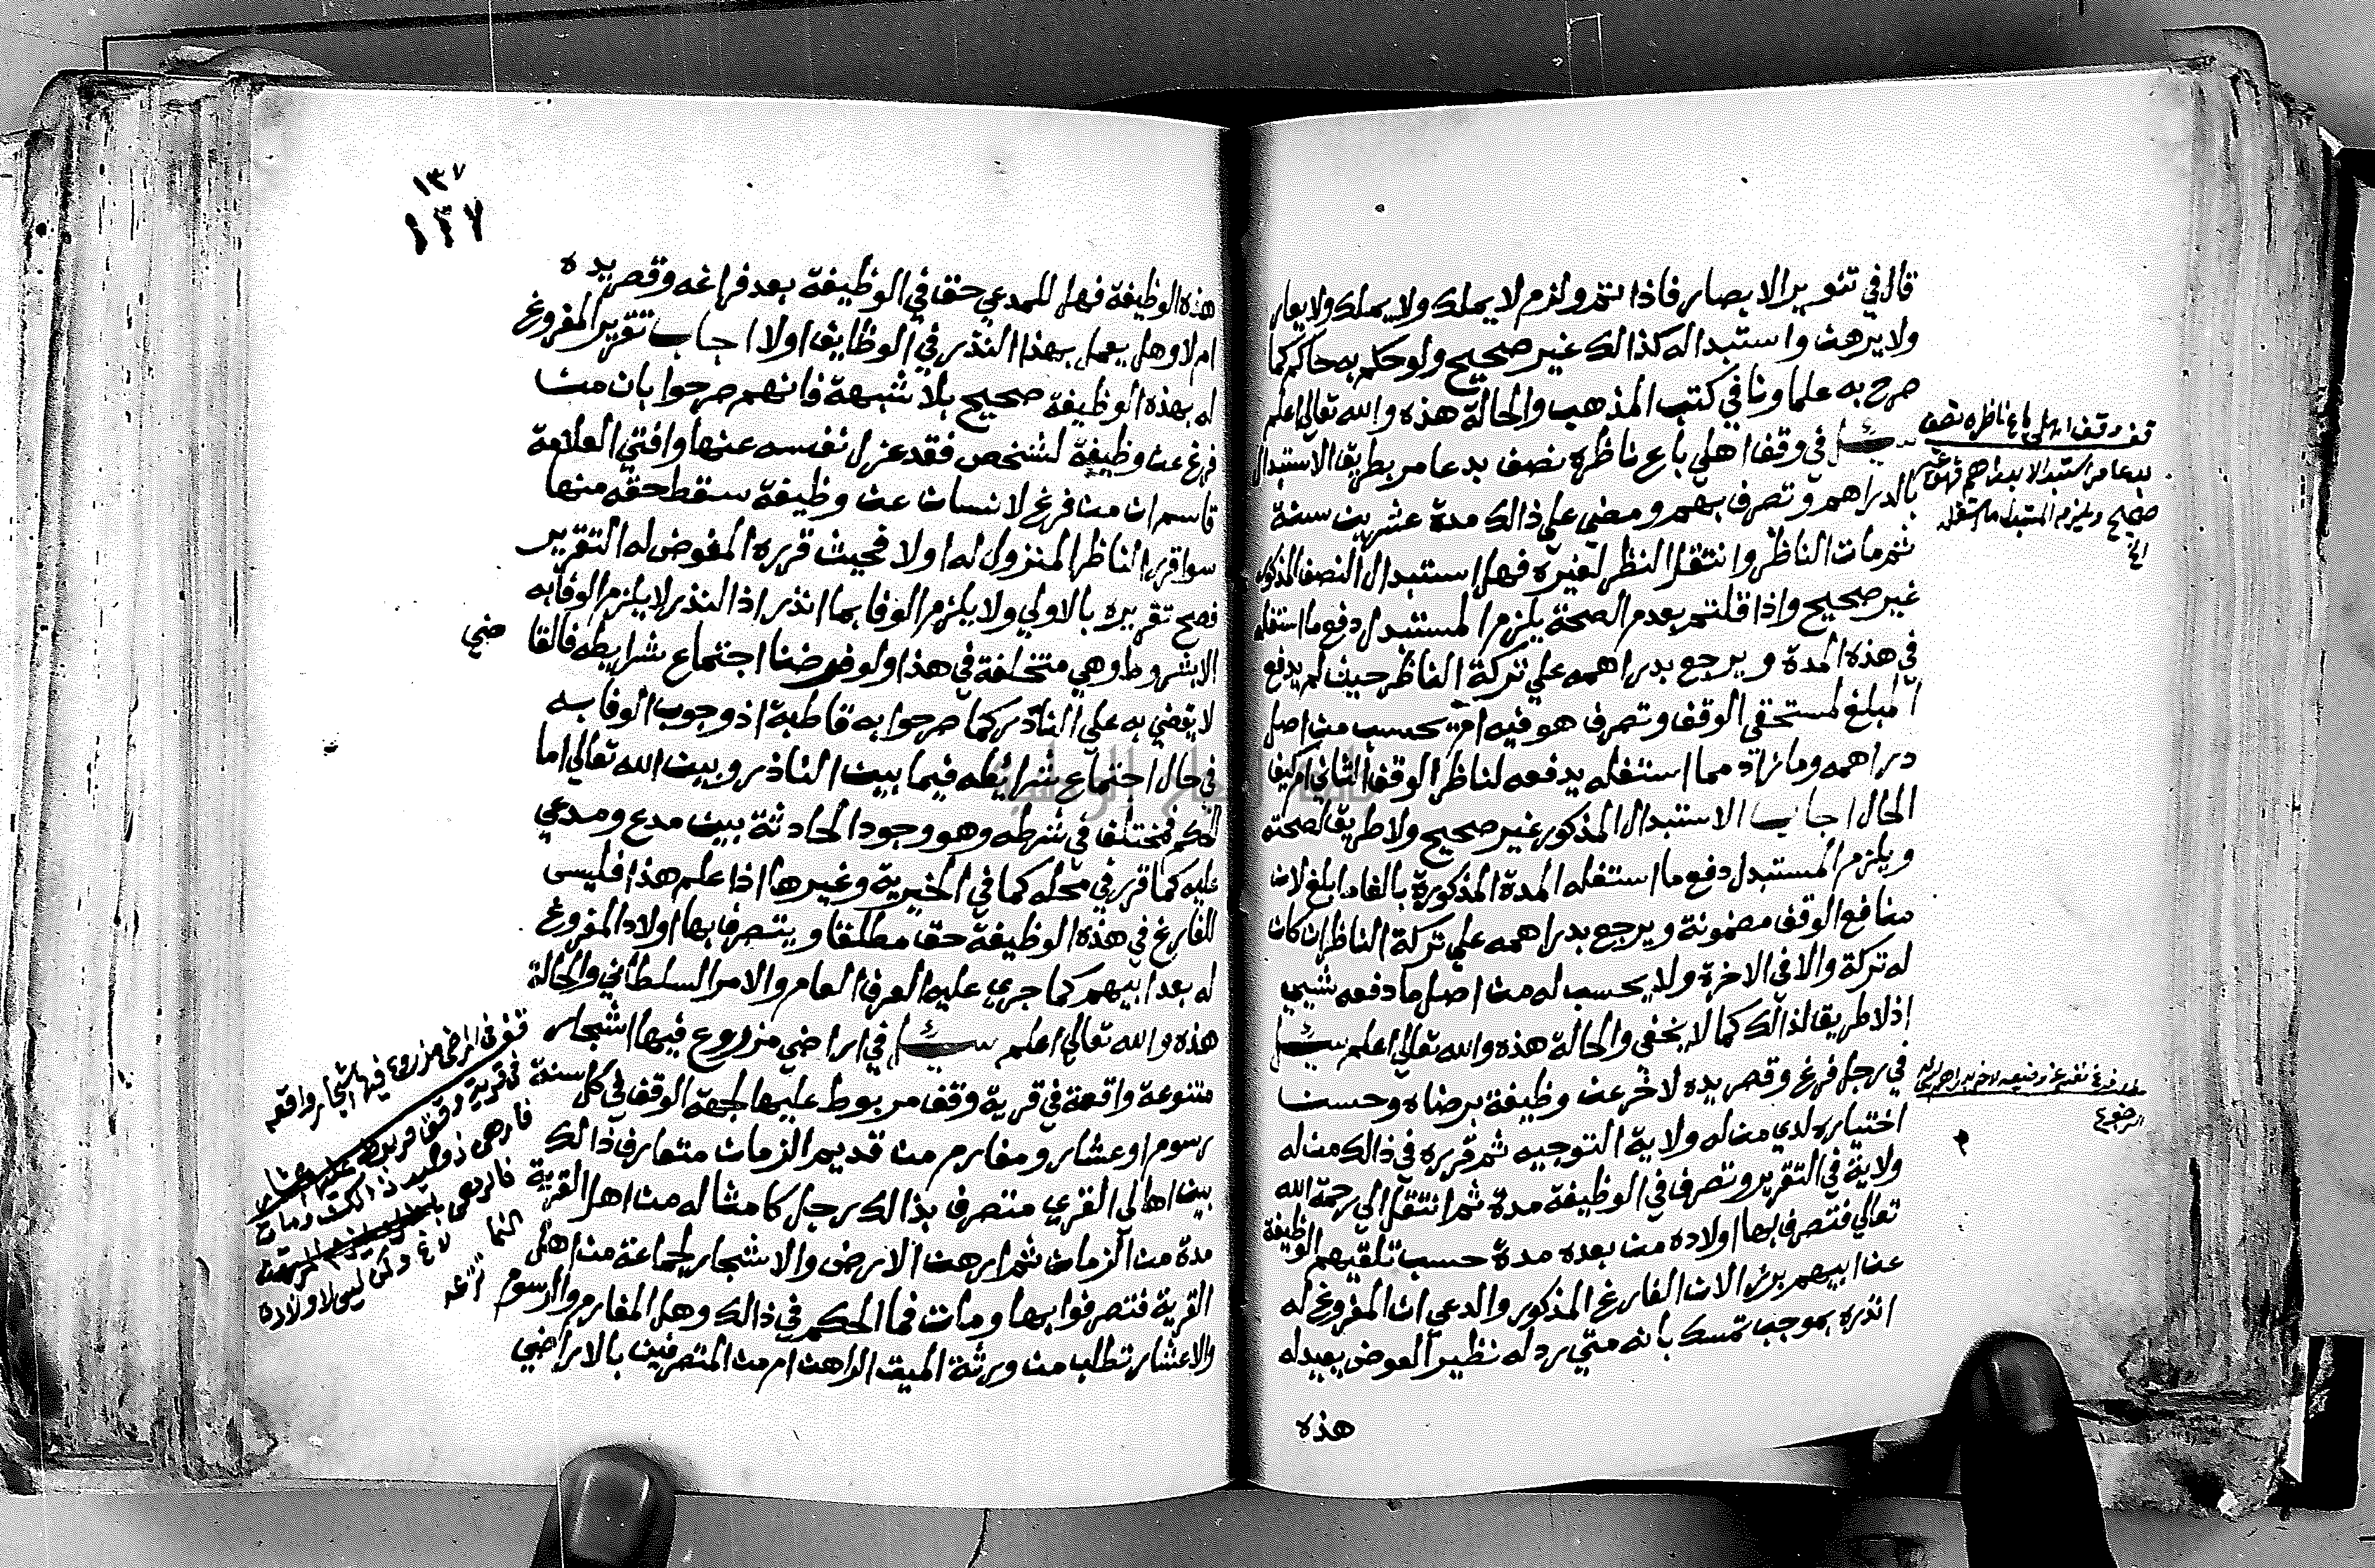 قال في تنوير الابصار فاذا تم ولزم لا يملك ولا يملك ولا يعار
ولا يرهن واستبداله كذالك غير صحيح ولو حكم به حاكم كما
صرح به علماونا في كتب المذهب والحالة هذه والله تعالي اعلم
سئل في وقف اهلي باع ناظره نصف بدعامر بطريق الاستبدال
بالدراهم وتصرف بهم ومضي علي ذالك مدة عشرين سنة
ثم مات الناظر وانتقل النظر لغيره فهل استبدال النصف المذكور
غير صحيح واذا قلتم بعدم الصحة يلزم المستبدل دفع ما استغله
في هذه المدة ويرجع بدراهمه علي تركة الناظر حيث لم يدفع
المبلغ لمستحقي الوقف وتصرف هو فيه ام يحسب من اصل
دراهمه وما زاد مما استغله يدفعه لناظر الوقف الثاني ام كيف
الحال اجاب الاستبدال المذكور غير صحيح ولا طريق لصحته
ويلزم المستبدل دفع ما استغله المدة المذكورة بالغا ما بلغ لان
منافع الوقف مضمونة ويرجع بدراهمه علي تركة الناظر ان كان
له تركة والا في الاخرة ولا يحسب له من اصل ما دفعه شيي
اذ لا طريق لذالك كما لا يخفي والحالة هذه والله تعالي اعلم سئل
في رجل فرغ وقصر يده لاخر عن وظيفة برضاه وحسن
اختياره لدي من له ولاية التوجيه ثم قرره في ذالك من له
ولاية في التقرير وتصرف في الوظيفة مدة ثم انتقل الي رحمة الله
تعالي فتصرف بها اولاده من بعده مدة حسب تلقيهم الوظيفة
عن ابيهم برز الان الفارغ المذكور والدعي ان المفروغ له
انذره بموجب تمسك بانه متي رد له نظير العوض يعيد له
هذه
قف وقف اهلي باع ناظره نصف
بدعامر استبدالا بدراهم فهو غير
صحيح ويلزم المستبدل ما استغله
الخ
١٣٧
١٣٧
هذه الوظيفة فهل للمدعي حق في الوظيفة بعد فراغه وقصر يده
ام لا وهل يعمل بهذا النذر في الوظايف اولا اجاب تقرير المفروغ
له بهذه الوظيفة صحيح بلا شبهة فانهم صرحوا بان من
فرغ عن وظيفة لشخص فقد عزل نفسه عنها وافتي العلامة
قاسم ان من فرغ لانسان عن وظيفة سقط حقه منها
سوا قرر الناظر المنزول له اولا فحيث قرره المفوض له التقرير
فصح تقريره بالاولي ولا يلزم الوفا بما انذر اذ النذر لا يلزم الوفا به
الا بشروط وهي متخلفة في هذا ولو فرضنا اجتماع شرايطه فالقا ضي
لا يقضي به علي الناذر كما صرحوا به قاطبة اذ وجوب الوفا به
في حال اجتماع شرائطه فيما بين الناذر وبين الله تعالي اما
الحكم فمختلف في شرطه وهو وجود الحادثة بين مدع ومدعي
عليه كما قرر في محله كما في الخيرية وغيرها اذا علم هذا فليس
للفارغ في هذه الوظيفة حق مطلقا ويتصرف بها اولاد المفروغ
له بعد ابيهم كما جري عليه العرف العام والامر السلطاني والحالة
هذه والله تعالي اعلم سئل في اراضي مزروع فيها اشجار
متنوعة واقعة في قرية وقف مربوط عليها لجهة الوقف في كل سنة
رسوم او عشار ومغارم من قديم الزمان متعارف ذالك
بين اهالي القري متصرف بذالك رجل كامثاله من اهل القرية
مدة من الزمان ثم ارهن الارض والاشجار لجماعة من اهل
القرية فتصرفوا بها ومات فما الحكم في ذالك وهل المغارم والرسوم
والاعشار تطلب من ورثة الميت الراهن ام من المتصرفين بالاراضي
قف في ارض مزروع فيها اشجار واقعه
في قرية وقف مربوط عليها